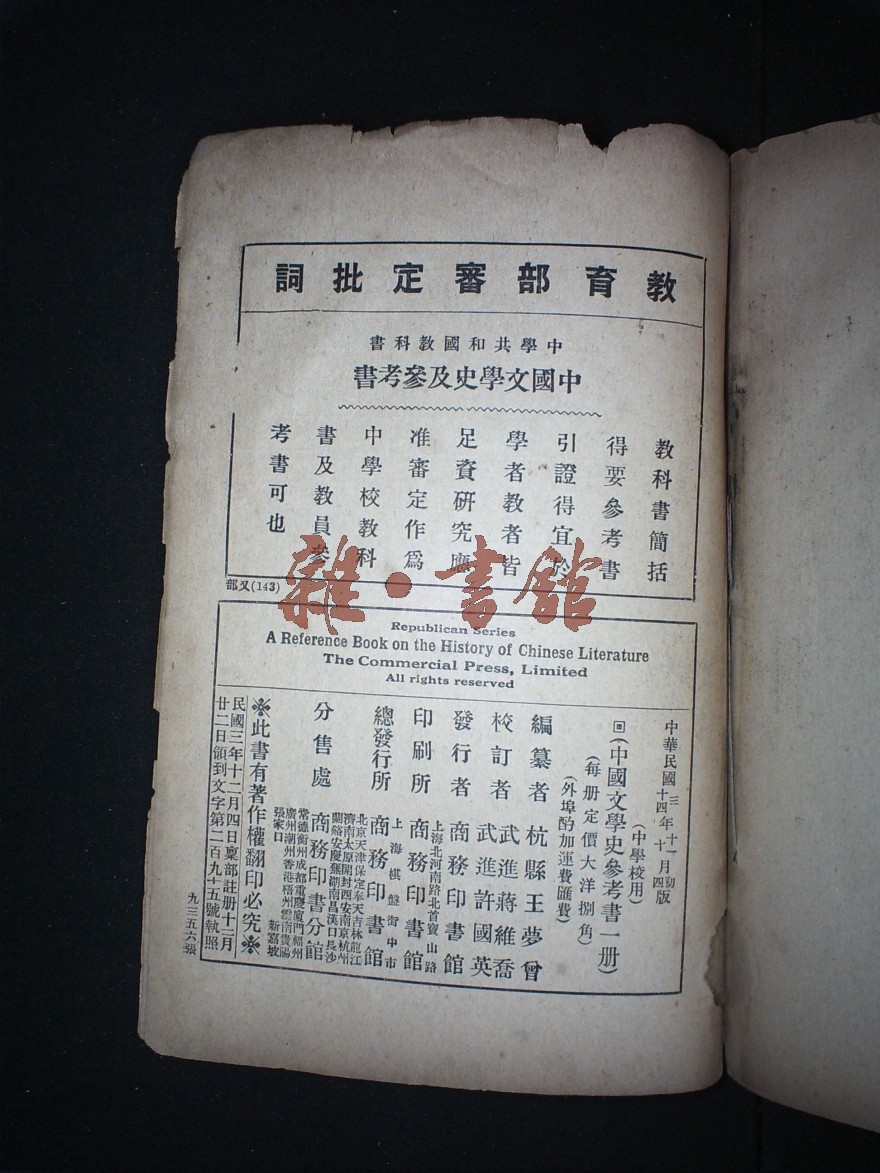 教育部審定批詞
中學共和國教科書
中國文學史及參考書
教科書簡括
得要參考書
引證得宜於
學者教者皆
足資研究應
准審定作爲
中學校教科
書及教員參
考書可也
(143)又部
雜·書館
Republican Series
A Reference Book on the History of Chinese Literature
The Commercial Press, Limited
All rights reserved
中華民國三年十一月初版
十四年十月四版
(中學校用)
回(中國文學史參考書一册)
(每册定價大洋捌角)
(外埠酌加運費匯費)
編纂者 杭縣王夢曾
校訂者 武進蔣維喬
武進許國英
發行者 商務印書館
上海北河南路北首寶山路
印刷所 商務印書館
上海棋盤街中市
總發行所 商務印書館
北京天津保定奉天吉林龍江
濟南太原開封西安南京杭州
蘭谿安慶蕪湖南昌漢口長沙
分售處 商務印書分館
常德衡州成都重慶廈門福州
廣州潮州香港梧州雲南貴陽
張家口 新嘉坡
※此書有著作權翻印必究※
民國三年十二月四日稟部註册十二月
廿二日領到文字第二百九十五號執照
九三五六張